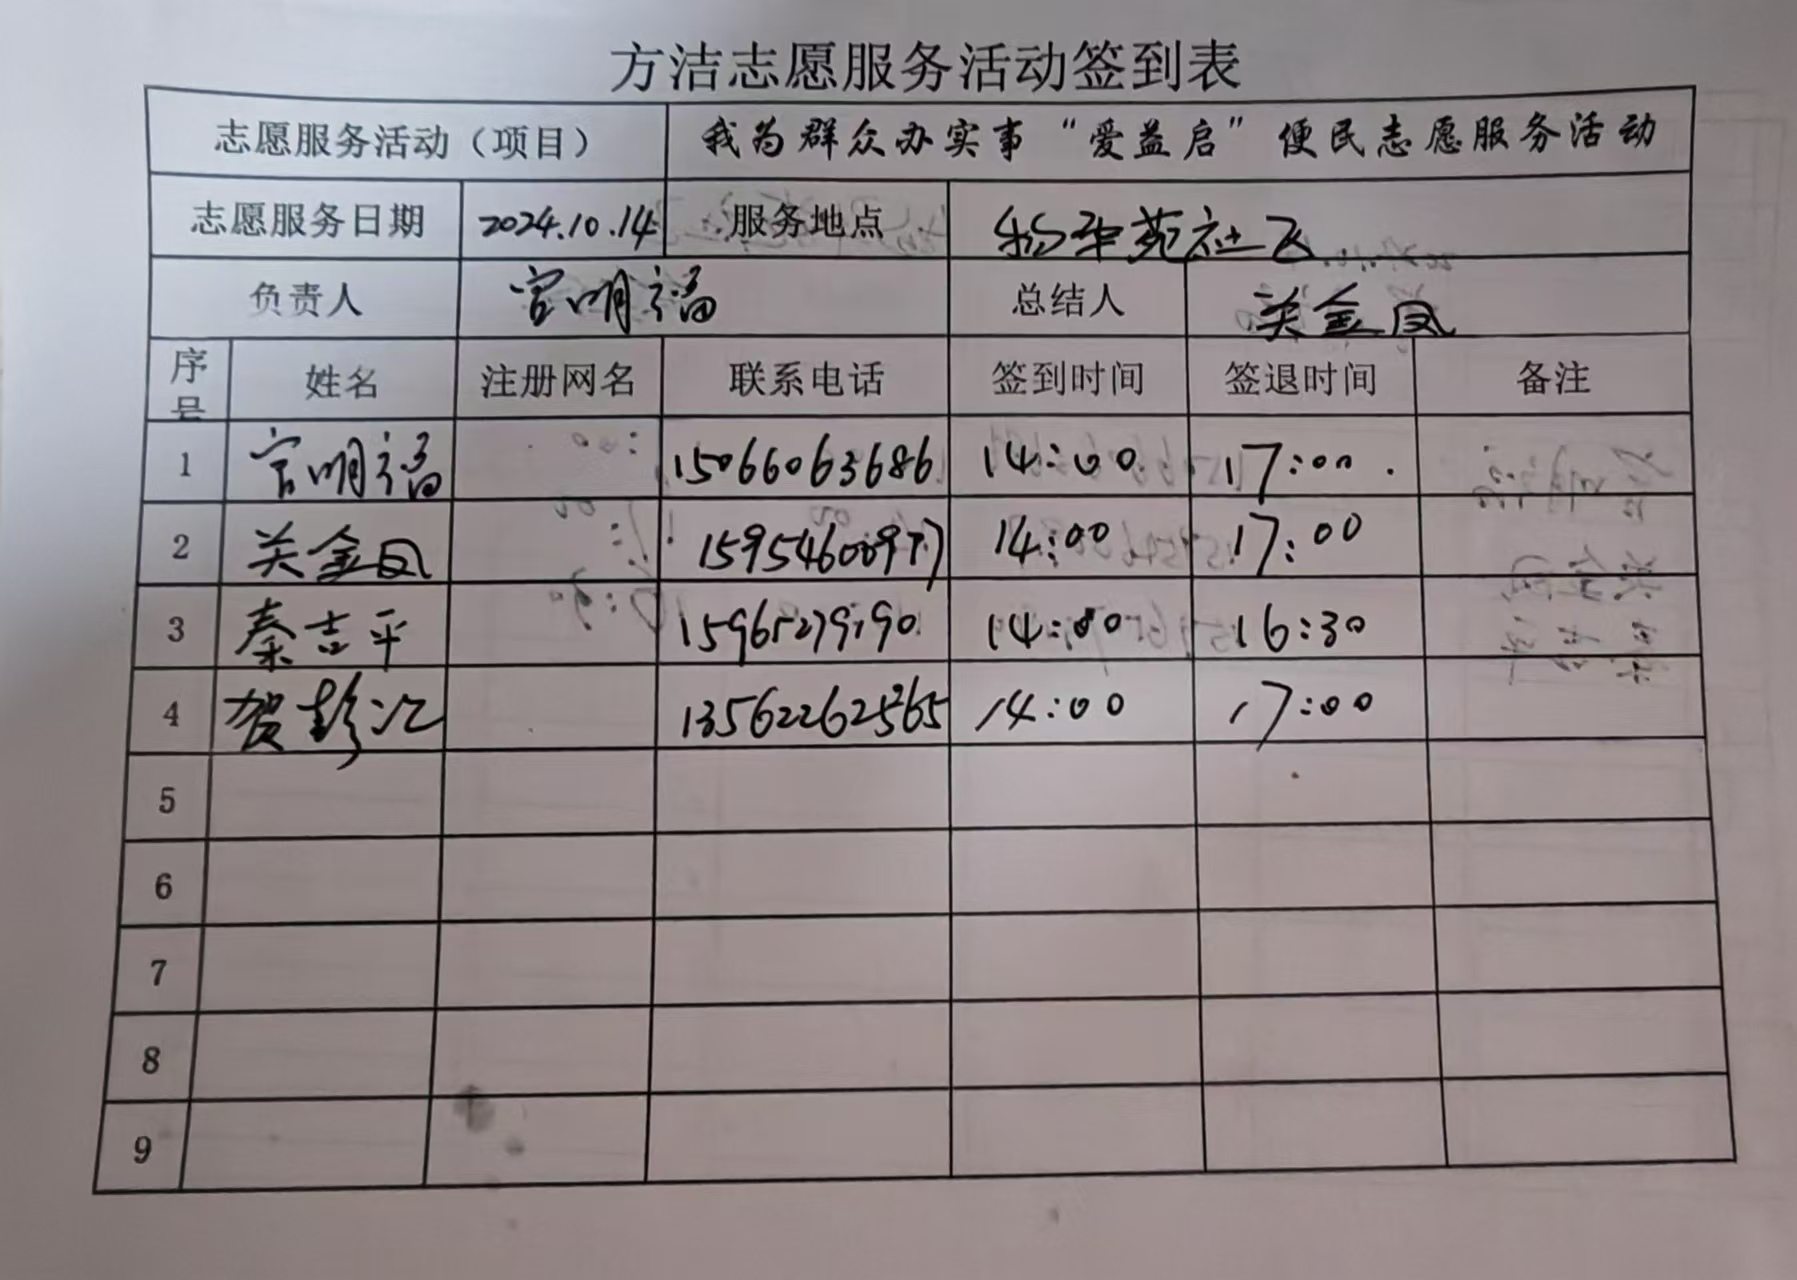 方洁志愿服务活动签到表
志愿服务活动（项目） 我为群众办实事“爱益启”便民志愿服务活动
志愿服务日期 2024.10.14 服务地点 苑社区
负责人 官明福 总结人 关金凤
序号 姓名 注册网名 联系电话 签到时间 签退时间 备注
1 官明福 15066063686 14:00 17:00
2 关金凤 15954600977 14:00 17:00
3 秦吉平 15965279190 14:00 16:30
4 贺彭汇 13562262565 14:00 17:00
5
6
7
8
9